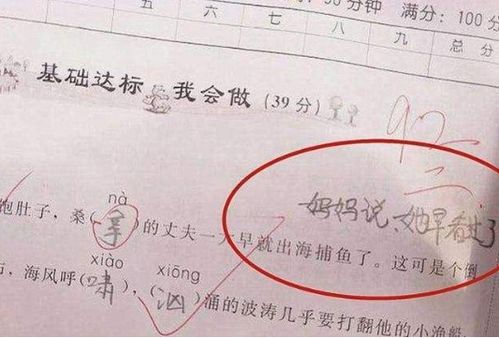 分钟 满分：100分
五 六 七 八 九 总分
基础达标 我会做（39分）
92
妈妈说，她早看过了
nà
饱肚子，桑（拿）的丈夫一大早就出海捕鱼了。这可是个倒
xiào xiōng
，海风呼（啸），（汹）涌的波涛几乎要打翻他的小渔船，